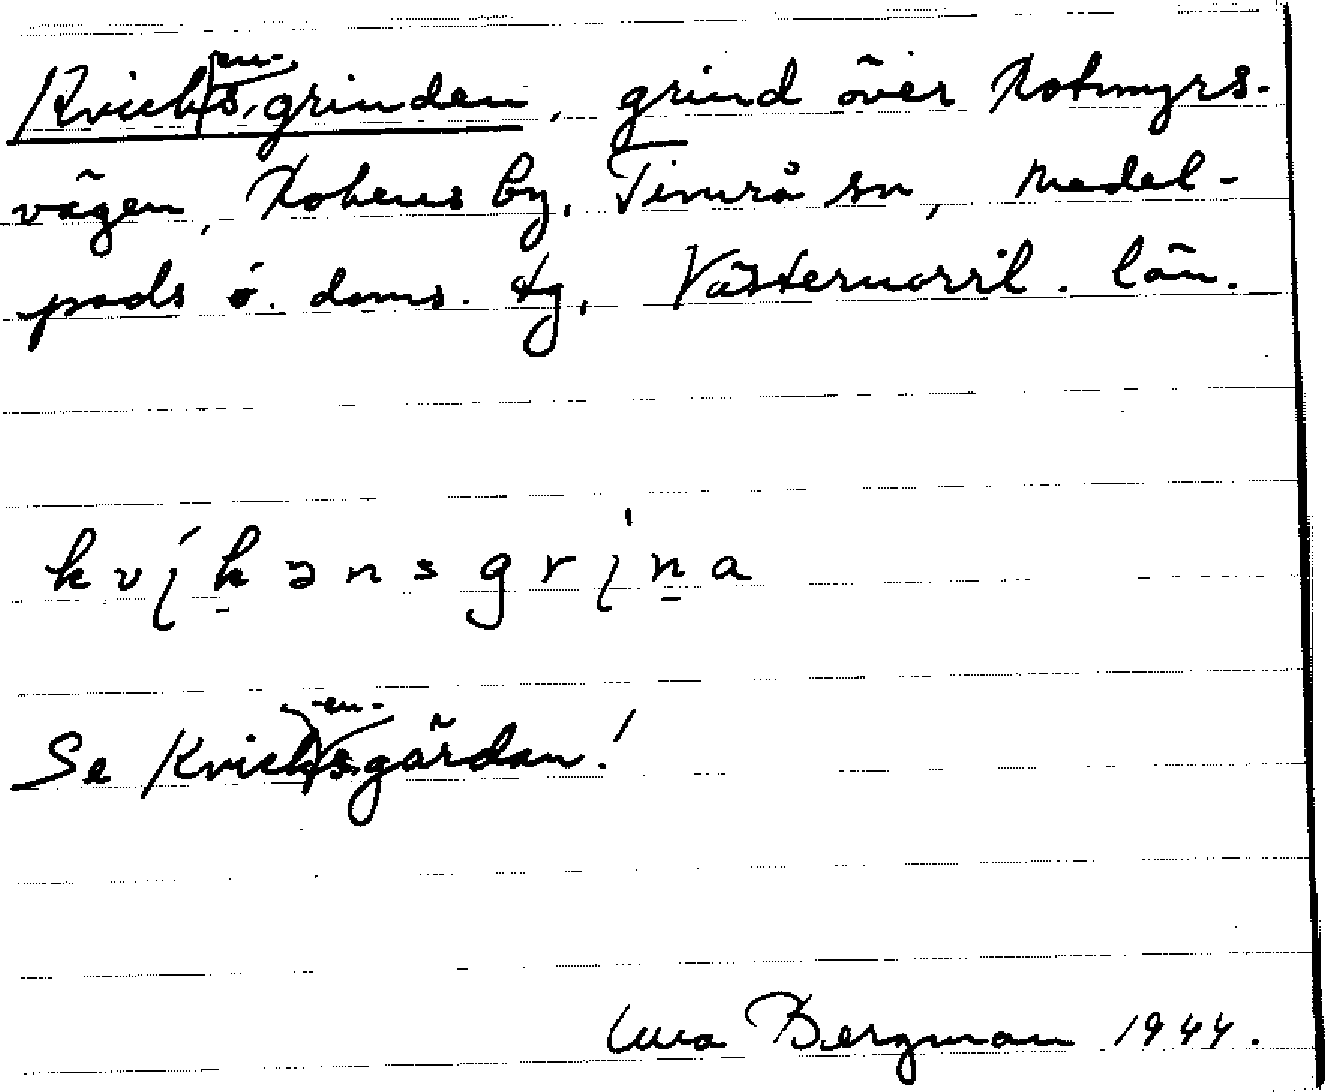 Kvickens.grinden, grind över Kotmyrs-
vägen, Kobens by, Timrå sn, Medel-
pads ö. doms. tg, Västernorrl. län.
kvi̯k̠ənsgri̯n̠a
Se Kvickens.gärdan!
Bergman 1944.